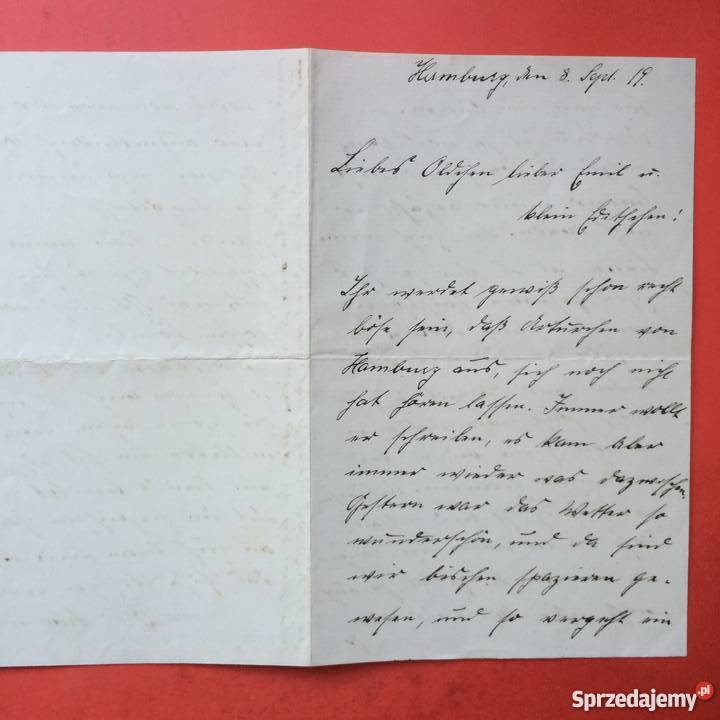 Hamburg, den 8. Sept. 19.
Liebes Oldchen lieber Emil u.
klein Edithchen!
Ihr werdet gewiß schon recht
böse sein, daß Arturchen von
Hamburg aus, sich noch nicht
hat hören lassen. Immer wollt
er schreiben, es kam aber
immer wieder was dazwischen.
Gestern war das Wetter so
wunderschön, und da sind
wir bischen spazieren ge-
wesen, und so vergeht ein
Sprzedajemy.pl